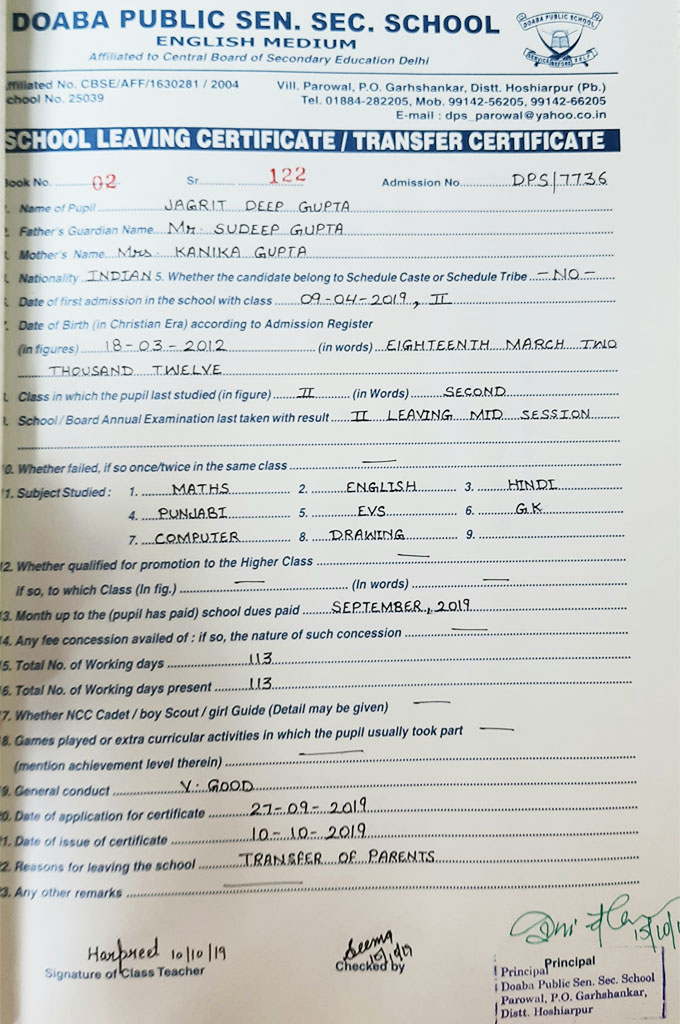 DOABA PUBLIC SEN. SEC. SCHOOL
ENGLISH MEDIUM
Affiliated to Central Board of Secondary Education Delhi
DOABA PUBLIC SCHOOL
SERVICE BEFORE SELF
ffiliated No. CBSE/AFF/1630281 / 2004
chool No. 25039
Vill. Parowal, P.O. Garhshankar, Distt. Hoshiarpur (Pb.)
Tel. 01884-282205, Mob. 99142-56205, 99142-66205
E-mail : dps_parowal@yahoo.co.in
SCHOOL LEAVING CERTIFICATE / TRANSFER CERTIFICATE
ook No. 02 Sr. 122 Admission No. DPS/7736
. Name of Pupil JAGRIT DEEP GUPTA
. Father's Guardian Name Mr. SUDEEP GUPTA
. Mother's Name Mrs. KANIKA GUPTA
. Nationality INDIAN 5. Whether the candidate belong to Schedule Caste or Schedule Tribe - NO -
. Date of first admission in the school with class 09-04-2019, II
. Date of Birth (in Christian Era) according to Admission Register
(in figures) 18-03-2012 (in words) EIGHTEENTH MARCH TWO
THOUSAND TWELVE
. Class in which the pupil last studied (in figure) II (in Words) SECOND
. School / Board Annual Examination last taken with result II LEAVING MID SESSION
0. Whether failed, if so once/twice in the same class —
1. Subject Studied : 1. MATHS 2. ENGLISH 3. HINDI
4. PUNJABI 5. EVS 6. G.K
7. COMPUTER 8. DRAWING 9.
2. Whether qualified for promotion to the Higher Class —
if so, to which Class (In fig.) — (In words) —
3. Month up to the (pupil has paid) school dues paid SEPTEMBER, 2019
4. Any fee concession availed of : if so, the nature of such concession —
5. Total No. of Working days 113
6. Total No. of Working days present 113
7. Whether NCC Cadet / boy Scout / girl Guide (Detail may be given) —
8. Games played or extra curricular activities in which the pupil usually took part —
(mention achievement level therein) —
9. General conduct V. GOOD
0. Date of application for certificate 27-09-2019
1. Date of issue of certificate 10-10-2019
2. Reasons for leaving the school TRANSFER OF PARENTS
3. Any other remarks —
Harpreet 10/10/19
Signature of Class Teacher
Seema
Checked by
Principal
Principal
Doaba Public Sen. Sec. School
Parowal, P.O. Garhshankar,
Distt. Hoshiarpur